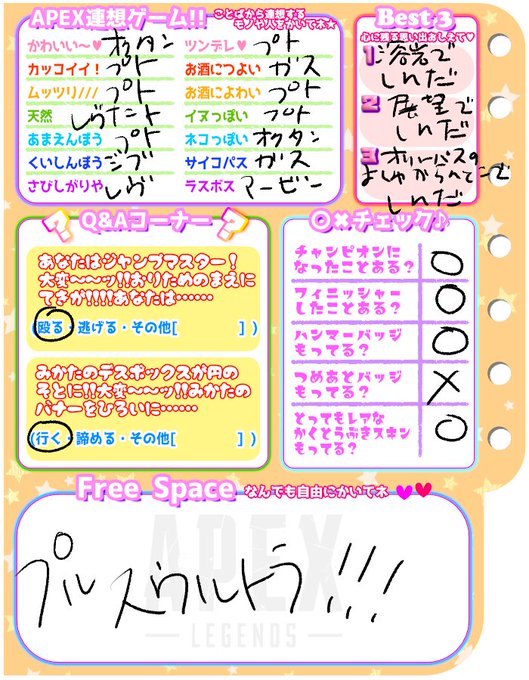 APEX連想ゲーム!!
ことばから連想する
モノや人をかいてネ★
かわいい〜♥ オクタン
ツンデレ♥ プト
カッコイイ! プト
お酒につよい ガス
ムッツリ/// プト
お酒によわい プト
天然 レヴナント
イヌっぽい プト
あまえんぼう プト
ネコっぽい オクタン
くいしんぼう ジブ
サイコパス ガス
さびしがりや レヴ
ラスボス マービン
Best 3
心に残る思い出おしえて♥
1 溶岩で
しんだ
2 展望で
しんだ
3 オリンパスの
しんだ
Q&Aコーナー
あなたはジャンプマスター!
大変〜〜ッ!!おりたためのまえに
てきが!!!!あなたは……
(殴る・逃げる・その他[ ])
みかたのデスボックスが円の
そとに!!大変〜〜ッ!!みかたの
バナーをひろいに……
(行く・諦める・その他[ ])
○×チェック♪
チャンピオンに
なったことある? ○
フィニッシャー
したことある? ○
ハンマーバッジ
もってる? ○
つめあとバッジ
もってる? ×
とってもレアな
かくとうぶきスキン
もってる? ○
Free Space なんでも自由にかいてネ ♥♥
プルスウルトラ!!!
APEX
LEGENDS